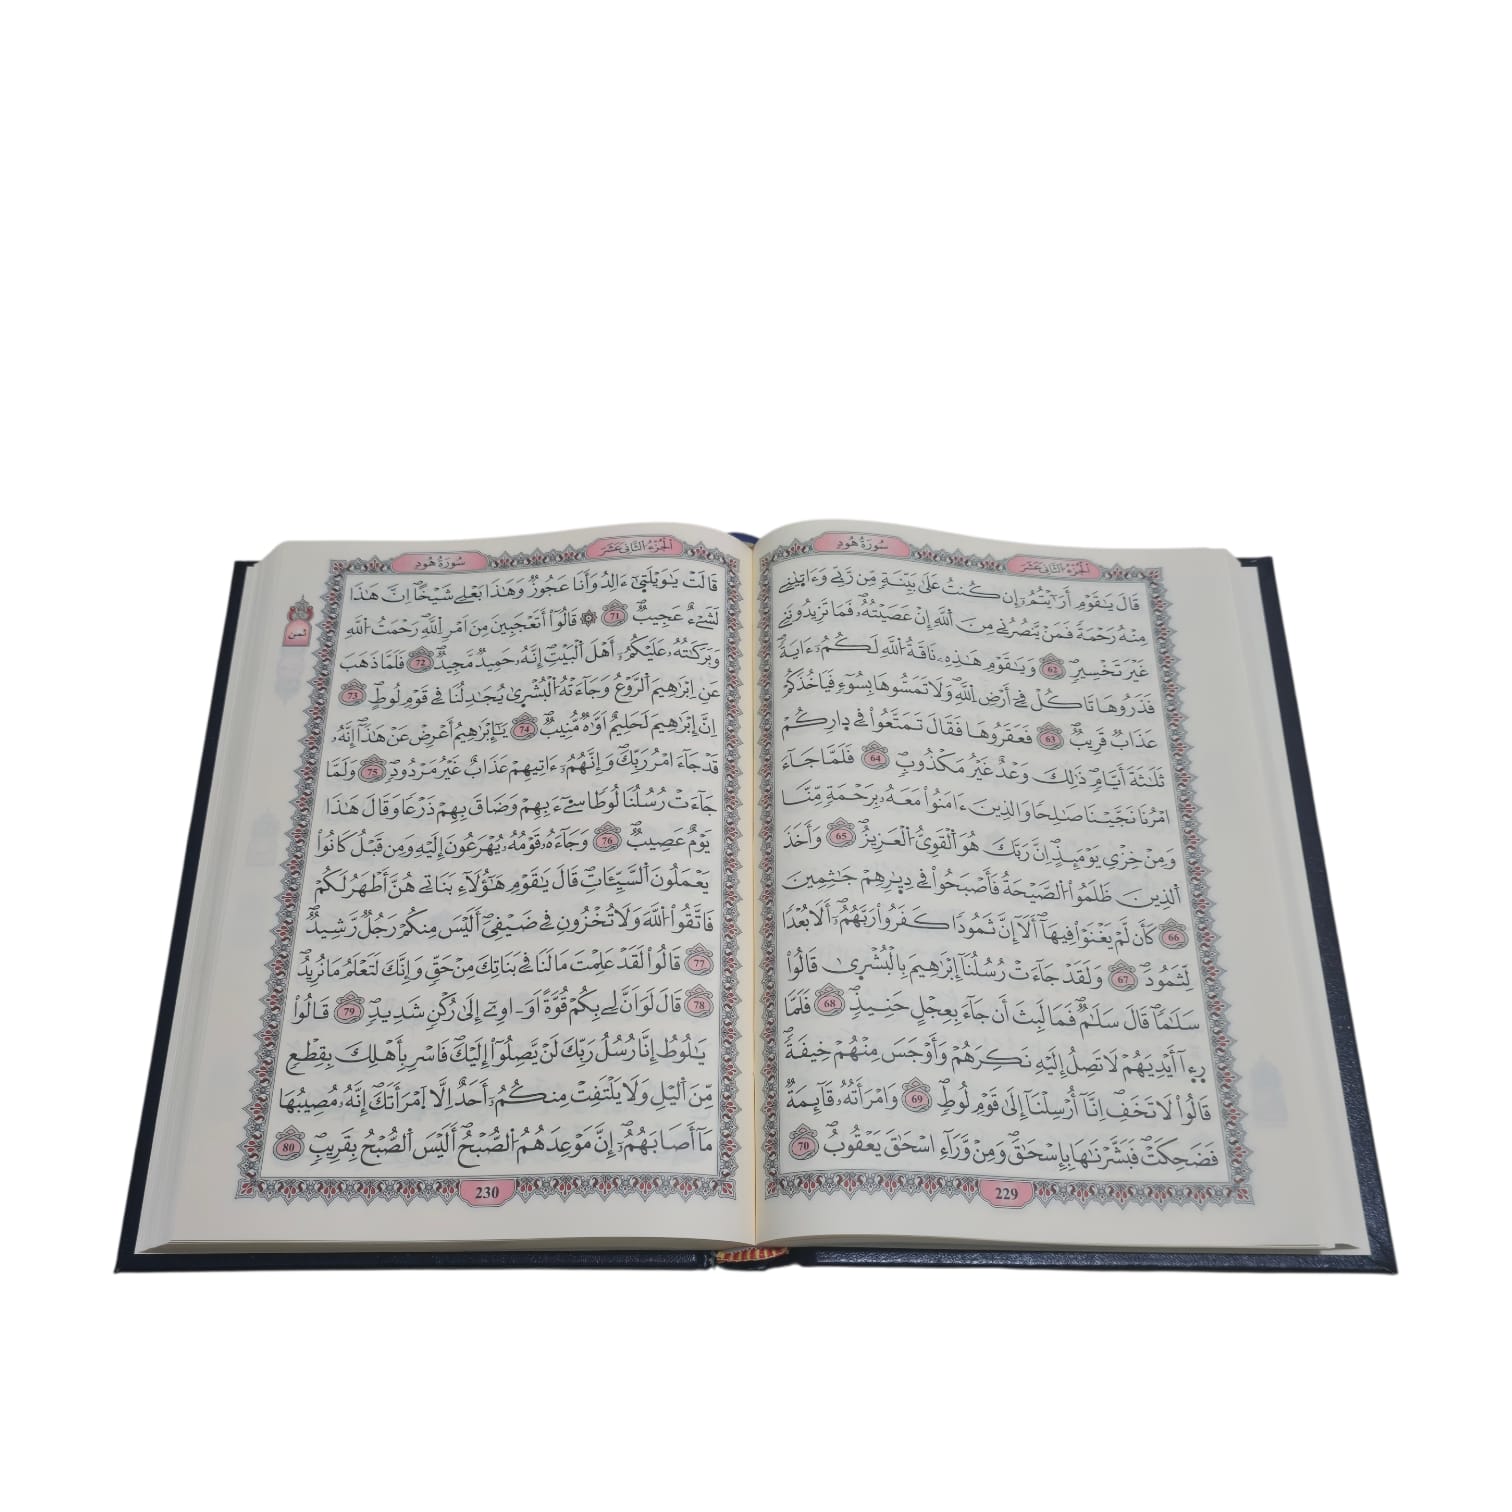 سُورَةُ هُودٍ
الجُزْءُ الثَّانِي عَشَرَ
قَالَ يَٰقَوْمِ أَرَٰٓيْتُمُۥٓ إِن كُنتُ عَلَىٰ بَيِّنَةٍ مِّن رَّبِّے وَءَاتۭيٰنِے
مِنْهُ رَحْمَةً فَمَنْ يَّنصُرُنِے مِنَ اَ۬للَّهِ إِنْ عَصَيْتُهُۥۖ فَمَا تَزِيدُونَنِے
غَيْرَ تَخْسِيرٍۖ 62 وَيَٰقَوْمِ هَٰذِهِۦ نَاقَةُ اُ۬للَّهِ لَكُمُۥٓ ءَايَةًۖ
فَذَرُوهَا تَاكُلْ فِےٓ أَرْضِ اِ۬للَّهِۖ وَلَا تَمَسُّوهَا بِسُوٓءٍ فَيَاخُذَكُمْ
عَذَابٌ قَرِيبٌۖ 63 فَعَقَرُوهَا فَقَالَ تَمَتَّعُواْ فِے دِارِكُمْ
ثَلَٰثَةَ أَيَّامٍۖ ذَٰلِكَ وَعْدٌ غَيْرُ مَكْذُوبٍۖ 64 فَلَمَّا جَآءَ
امْرُنَا نَجَّيْنَا صَٰلِحًا وَالذِينَ ءَامَنُواْ مَعَهُۥ بِرَحْمَةٍ مِّنَّا
وَمِنْ خِزْيِ يَوْمَئِذٍۖ اِنَّ رَبَّكَ هُوَ اَ۬لْقَوِيُّ اُ۬لْعَزِيزُۖ 65 وَأَخَذَ
اَ۬لذِينَ ظَلَمُواْ اُ۬لصَّيْحَةُ فَأَصْبَحُواْ فِے دِيٰرِهِمْ جَٰثِمِينَ
66 كَأَن لَّمْ يَغْنَوْاْ فِيهَآۖ أَلَآ إِنَّ ثَمُودًا كَفَرُواْ رَبَّهُمُۥٓۖ أَلَا بُعْدًا
لِّثَمُودَۖ 67 وَلَقَدْ جَآءَتْ رُسُلُنَآ إِبْرَٰهِيمَ بِالْبُشْرۭيٰ قَالُواْ
سَلَٰمًاۖ قَالَ سَلَٰمٌۖ فَمَا لَبِثَ أَن جَآءَ بِعِجْلٍ حَنِيذٍۖ 68 فَلَمَّا
رَءۭآ أَيْدِيَهُمْ لَا تَصِلُ إِلَيْهِ نَكِرَهُمْ وَأَوْجَسَ مِنْهُمْ خِيفَةًۖ
قَالُواْ لَا تَخَفِ اِنَّآ أُرْسِلْنَآ إِلَىٰ قَوْمِ لُوطٍۖ 69 وَامْرَأَتُهُۥ قَآئِمَةٌ
فَضَحِكَتْۖ فَبَشَّرْنَٰهَا بِإِسْحَٰقَۖ وَمِنْ وَّرَآءِ اسْحَٰقَ يَعْقُوبُۖ 70
229
الجُزْءُ الثَّانِي عَشَرَ
سُورَةُ هُودٍ
ثمن
قَالَتْ يَٰوَيْلَتۭيٰٓ ءَالِدُ وَأَنَا عَجُوزٌ وَهَٰذَا بَعْلِے شَيْخًاۖ اِنَّ هَٰذَا
لَشَےْءٌ عَجِيبٌۖ 71 ۞ قَالُوٓاْ أَتَعْجَبِينَ مِنَ اَمْرِ اِ۬للَّهِۖ رَحْمَتُ اُ۬للَّهِ
وَبَرَكَٰتُهُۥ عَلَيْكُمُۥٓ أَهْلَ اَ۬لْبَيْتِۖ إِنَّهُۥ حَمِيدٌ مَّجِيدٌۖ 72 فَلَمَّا ذَهَبَ
عَنِ اِبْرَٰهِيمَ اَ۬لرَّوْعُ وَجَآءَتْهُ اُ۬لْبُشْرۭيٰ يُجَٰدِلُنَا فِے قَوْمِ لُوطٍۖ 73
اِنَّ إِبْرَٰهِيمَ لَحَلِيمٌ اَوَّٰهٌ مُّنِيبٌۖ 74 يَٰٓإِبْرَٰهِيمُ أَعْرِضْ عَنْ هَٰذَآۖ إِنَّهُۥ
قَد جَّآءَ امْرُ رَبِّكَۖ وَإِنَّهُمُۥٓ ءَاتِيهِمْ عَذَابٌ غَيْرُ مَرْدُودٍۖ 75 وَلَمَّا
جَآءَتْ رُسُلُنَا لُوطًا سِےٓءَ بِهِمْ وَضَاقَ بِهِمْ ذَرْعًا وَقَالَ هَٰذَا
يَوْمٌ عَصِيبٌۖ 76 وَجَآءَهُۥ قَوْمُهُۥ يُهْرَعُونَ إِلَيْهِ وَمِن قَبْلُ كَانُواْ
يَعْمَلُونَ اَ۬لسَّيِّـَٔاتِۖ قَالَ يَٰقَوْمِ هَٰٓؤُلَآءِ بَنَاتِے هُنَّ أَطْهَرُ لَكُمْ
فَاتَّقُواْ اُ۬للَّهَ وَلَا تُخْزُونِ فِے ضَيْفِيَۖ أَلَيْسَ مِنكُمْ رَجُلٌ رَّشِيدٌۖ
77 قَالُواْ لَقَدْ عَلِمْتَ مَا لَنَا فِے بَنَاتِكَ مِنْ حَقٍّۖ وَإِنَّكَ لَتَعْلَمُ مَا نُرِيدُۖ
78 قَالَ لَوَ اَنَّ لِے بِكُمْ قُوَّةً اَوَ اٰوِےٓ إِلَىٰ رُكْنٍ شَدِيدٍۖ 79 قَالُواْ
يَٰلُوطُ إِنَّا رُسُلُ رَبِّكَ لَنْ يَّصِلُوٓاْ إِلَيْكَۖ فَاسْرِ بِأَهْلِكَ بِقِطْعٍ
مِّنَ اَ۬ليْلِ وَلَا يَلْتَفِتْ مِنكُمُۥٓ أَحَدٌ اِلَّا اَ۪مْرَأَتَكَۖ إِنَّهُۥ مُصِيبُهَا
مَآ أَصَابَهُمُۥٓۖ إِنَّ مَوْعِدَهُمُ اُ۬لصُّبْحُۖ أَلَيْسَ اَ۬لصُّبْحُ بِقَرِيبٍۖ 80
230